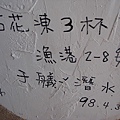 花凍3杯
漁港2-8號
潛水
98.4.3